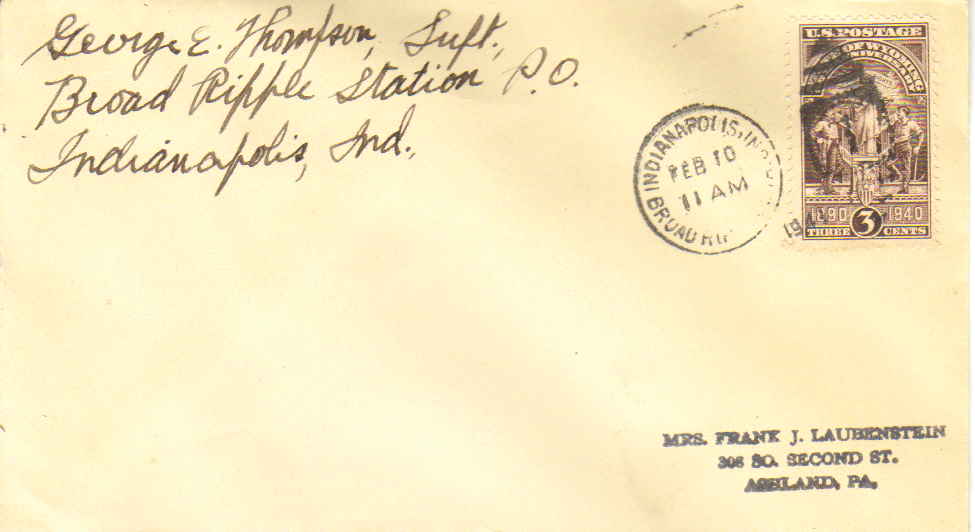 George E. Thompson, Supt.,
Broad Ripple Station P.O.
Indianapolis, Ind.,
U.S. POSTAGE
OF WYOMING
ANNIVERSARY
1890 1940
3
THREE CENTS
INDIANAPOLIS, IND.
FEB 10
11 AM
BROAD RIP
MRS. FRANK J. LAUBENSTEIN
306 SO. SECOND ST.
ASHLAND, PA.